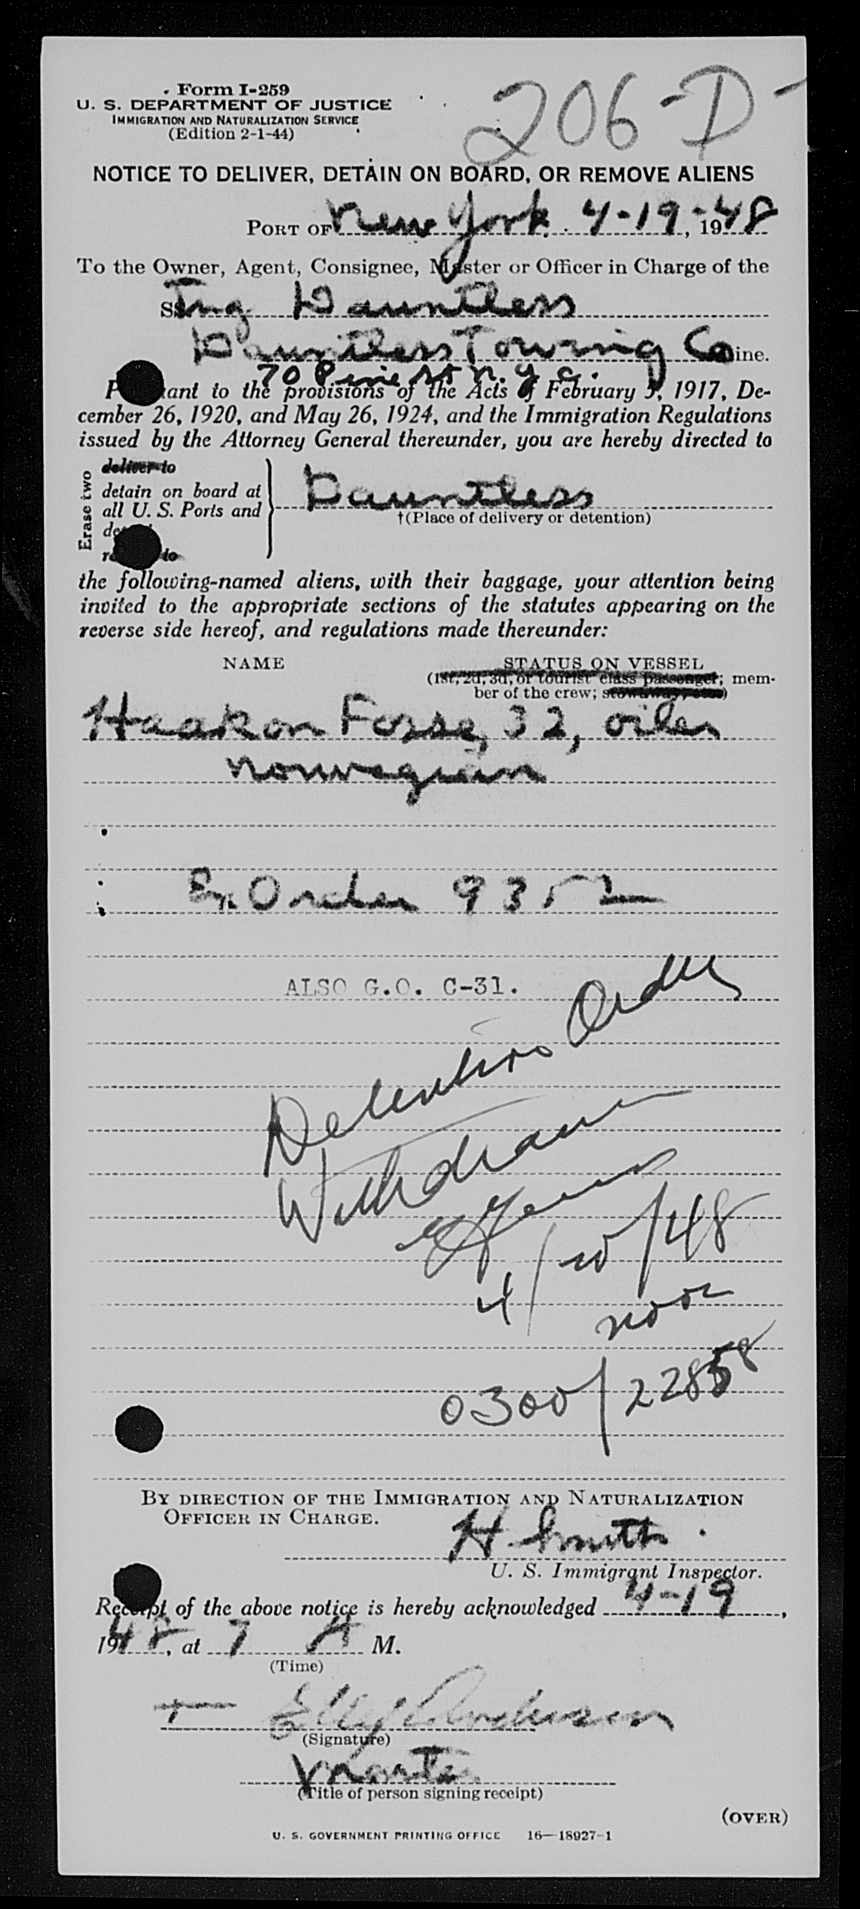 Form I-259
206-D-
U. S. DEPARTMENT OF JUSTICE
IMMIGRATION AND NATURALIZATION SERVICE
(Edition 2-1-44)
NOTICE TO DELIVER, DETAIN ON BOARD, OR REMOVE ALIENS
PORT OF New York, 4-19-48, 1948
To the Owner, Agent, Consignee, Master or Officer in Charge of the
SS Tug Dauntless
Dauntless Towing Co Line.
70 Pine St N.Y.C.
Pursuant to the provisions of the Acts of February 5, 1917, De-
cember 26, 1920, and May 26, 1924, and the Immigration Regulations
issued by the Attorney General thereunder, you are hereby directed to
Erase two
deliver to
detain on board at
all U. S. Ports and
Dauntless
†(Place of delivery or detention)
the following-named aliens, with their baggage, your attention being
invited to the appropriate sections of the statutes appearing on the
reverse side hereof, and regulations made thereunder:
NAME STATUS ON VESSEL
(1st, 2d, 3d, or tourist class passenger; mem-
ber of the crew; stowaway, etc.)
Haakon Fosse, 32, oiler
Norwegian
Ex Order 9352
ALSO G.O. C-31.
Detention Order
Withdrawn
4/20/48
noon
0300/22858
BY DIRECTION OF THE IMMIGRATION AND NATURALIZATION
OFFICER IN CHARGE.
H. Smith.
U. S. Immigrant Inspector.
Receipt of the above notice is hereby acknowledged 4-19,
1948, at 7 A M.
(Time)
Anderson
(Signature)
Master
(Title of person signing receipt)
(OVER)
U. S. GOVERNMENT PRINTING OFFICE 16—18927-1